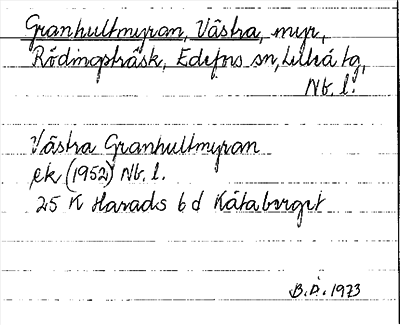 Granhultmyran, Västra, myr,
Rödingsträsk, Edefors sn, Luleå tg,
Nb. l.
Västra Granhultmyran
ek (1952) Nb. l.
25 K Harads 6 d Kåtaberget
B. Å. 1973